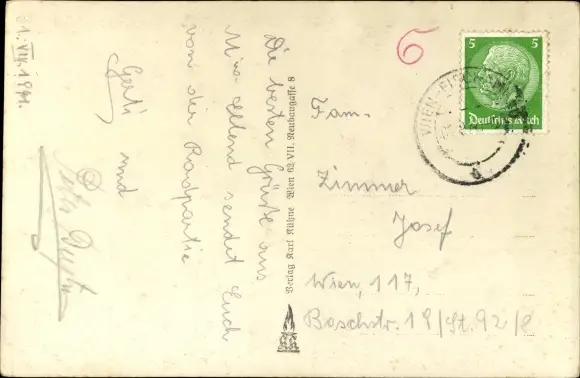 1. VII. 1941.
Die besten Grüße aus
sendet Euch
von der Radpartie
Gerti und
Verlag Karl Kühne Wien 62, VII. Neubaugasse 8
6
5 5
Deutsches Reich
WIEN
6
Fam.
Zimmer
Josef
Wien, 117,
Boschstr. 18/St. 92/8